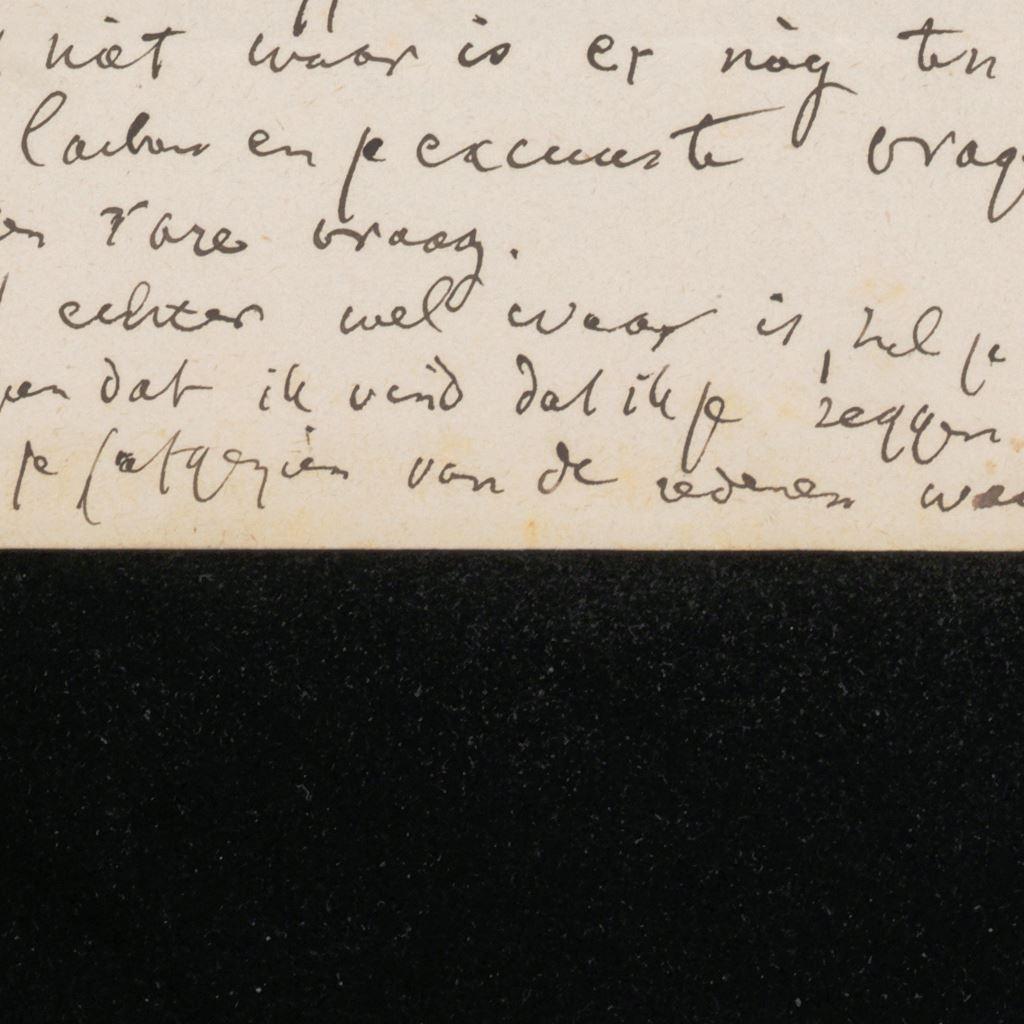 niet waar is er nòg ten
lachen en je excuus te vrag
en rare vraag.
echter wel waar is, zul je
pen dat ik vind dat ik je zeggen
je (afgezien van de redenen waa